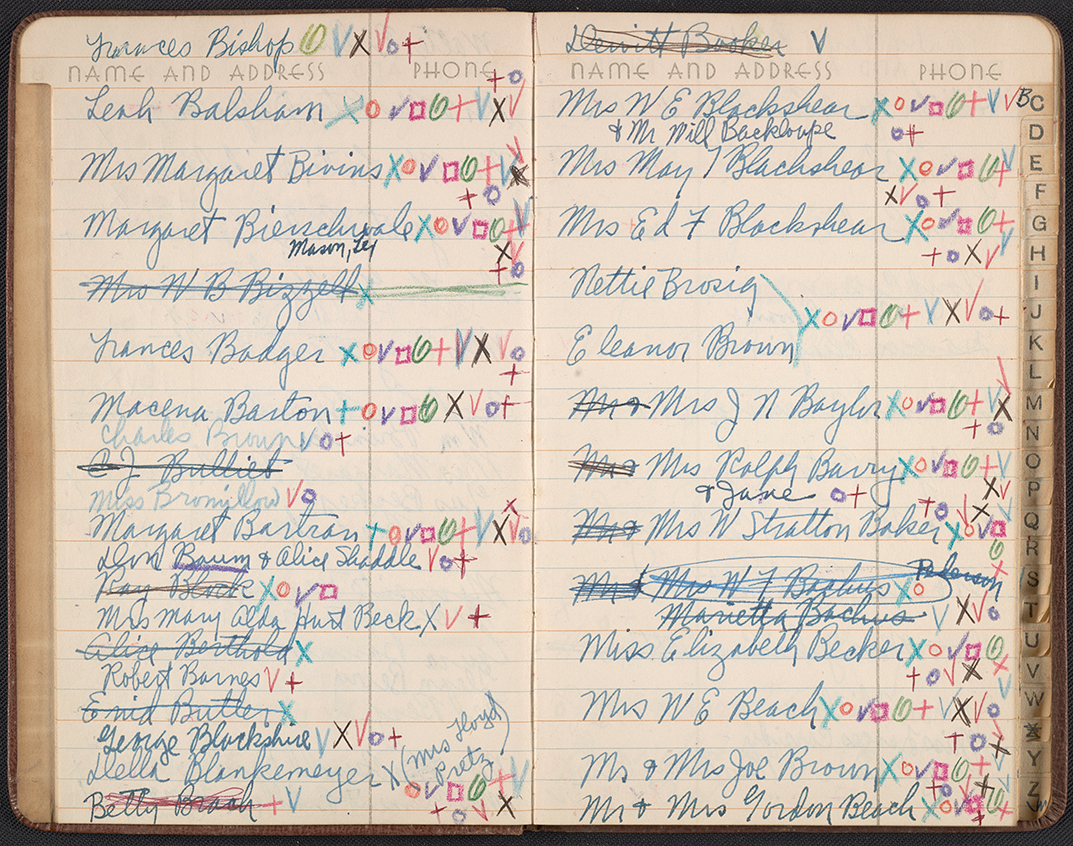 Frances Bishop
NAME AND ADDRESS PHONE
Leah Balsham
Mrs Margaret Bivins
Margaret Bierschwale
Mason, Tex
Mrs W B Bizzell
Frances Badger
Macena Barton
Charles Brown
C J Bulliet
Miss Bromillow
Margaret Bartran
Don Baum & Alice Shaddle
Ray Block
Mrs Mary Alda Hart Beck
Alice Berthold
Robert Barnes
Enid Butler
George Blackshire
Della Blankemeyer (Mrs Floyd
Pretz)
Betty Brach
Derritt Booker
NAME AND ADDRESS PHONE
Mrs W E Blackshear
& Mr Will Backloupe
Mrs May I Blackshear
Mrs Ed F Blackshear
Nettie Brosig
Eleanor Brown
Mr & Mrs J N Baylor
Mr & Mrs Ralph Barry
& Jane
Mr & Mrs W Stratton Baker
Mr & Mrs W F Backus Pederson
Marietta Bachus
Miss Elizabeth Becker
Mrs W E Beach
Mr & Mrs Joe Brown
Mr & Mrs Gordon Beach
B
C
D
E
F
G
H
I
J
K
L
M
N
O
P
Q
R
S
T
U
V
W
X
Y
Z